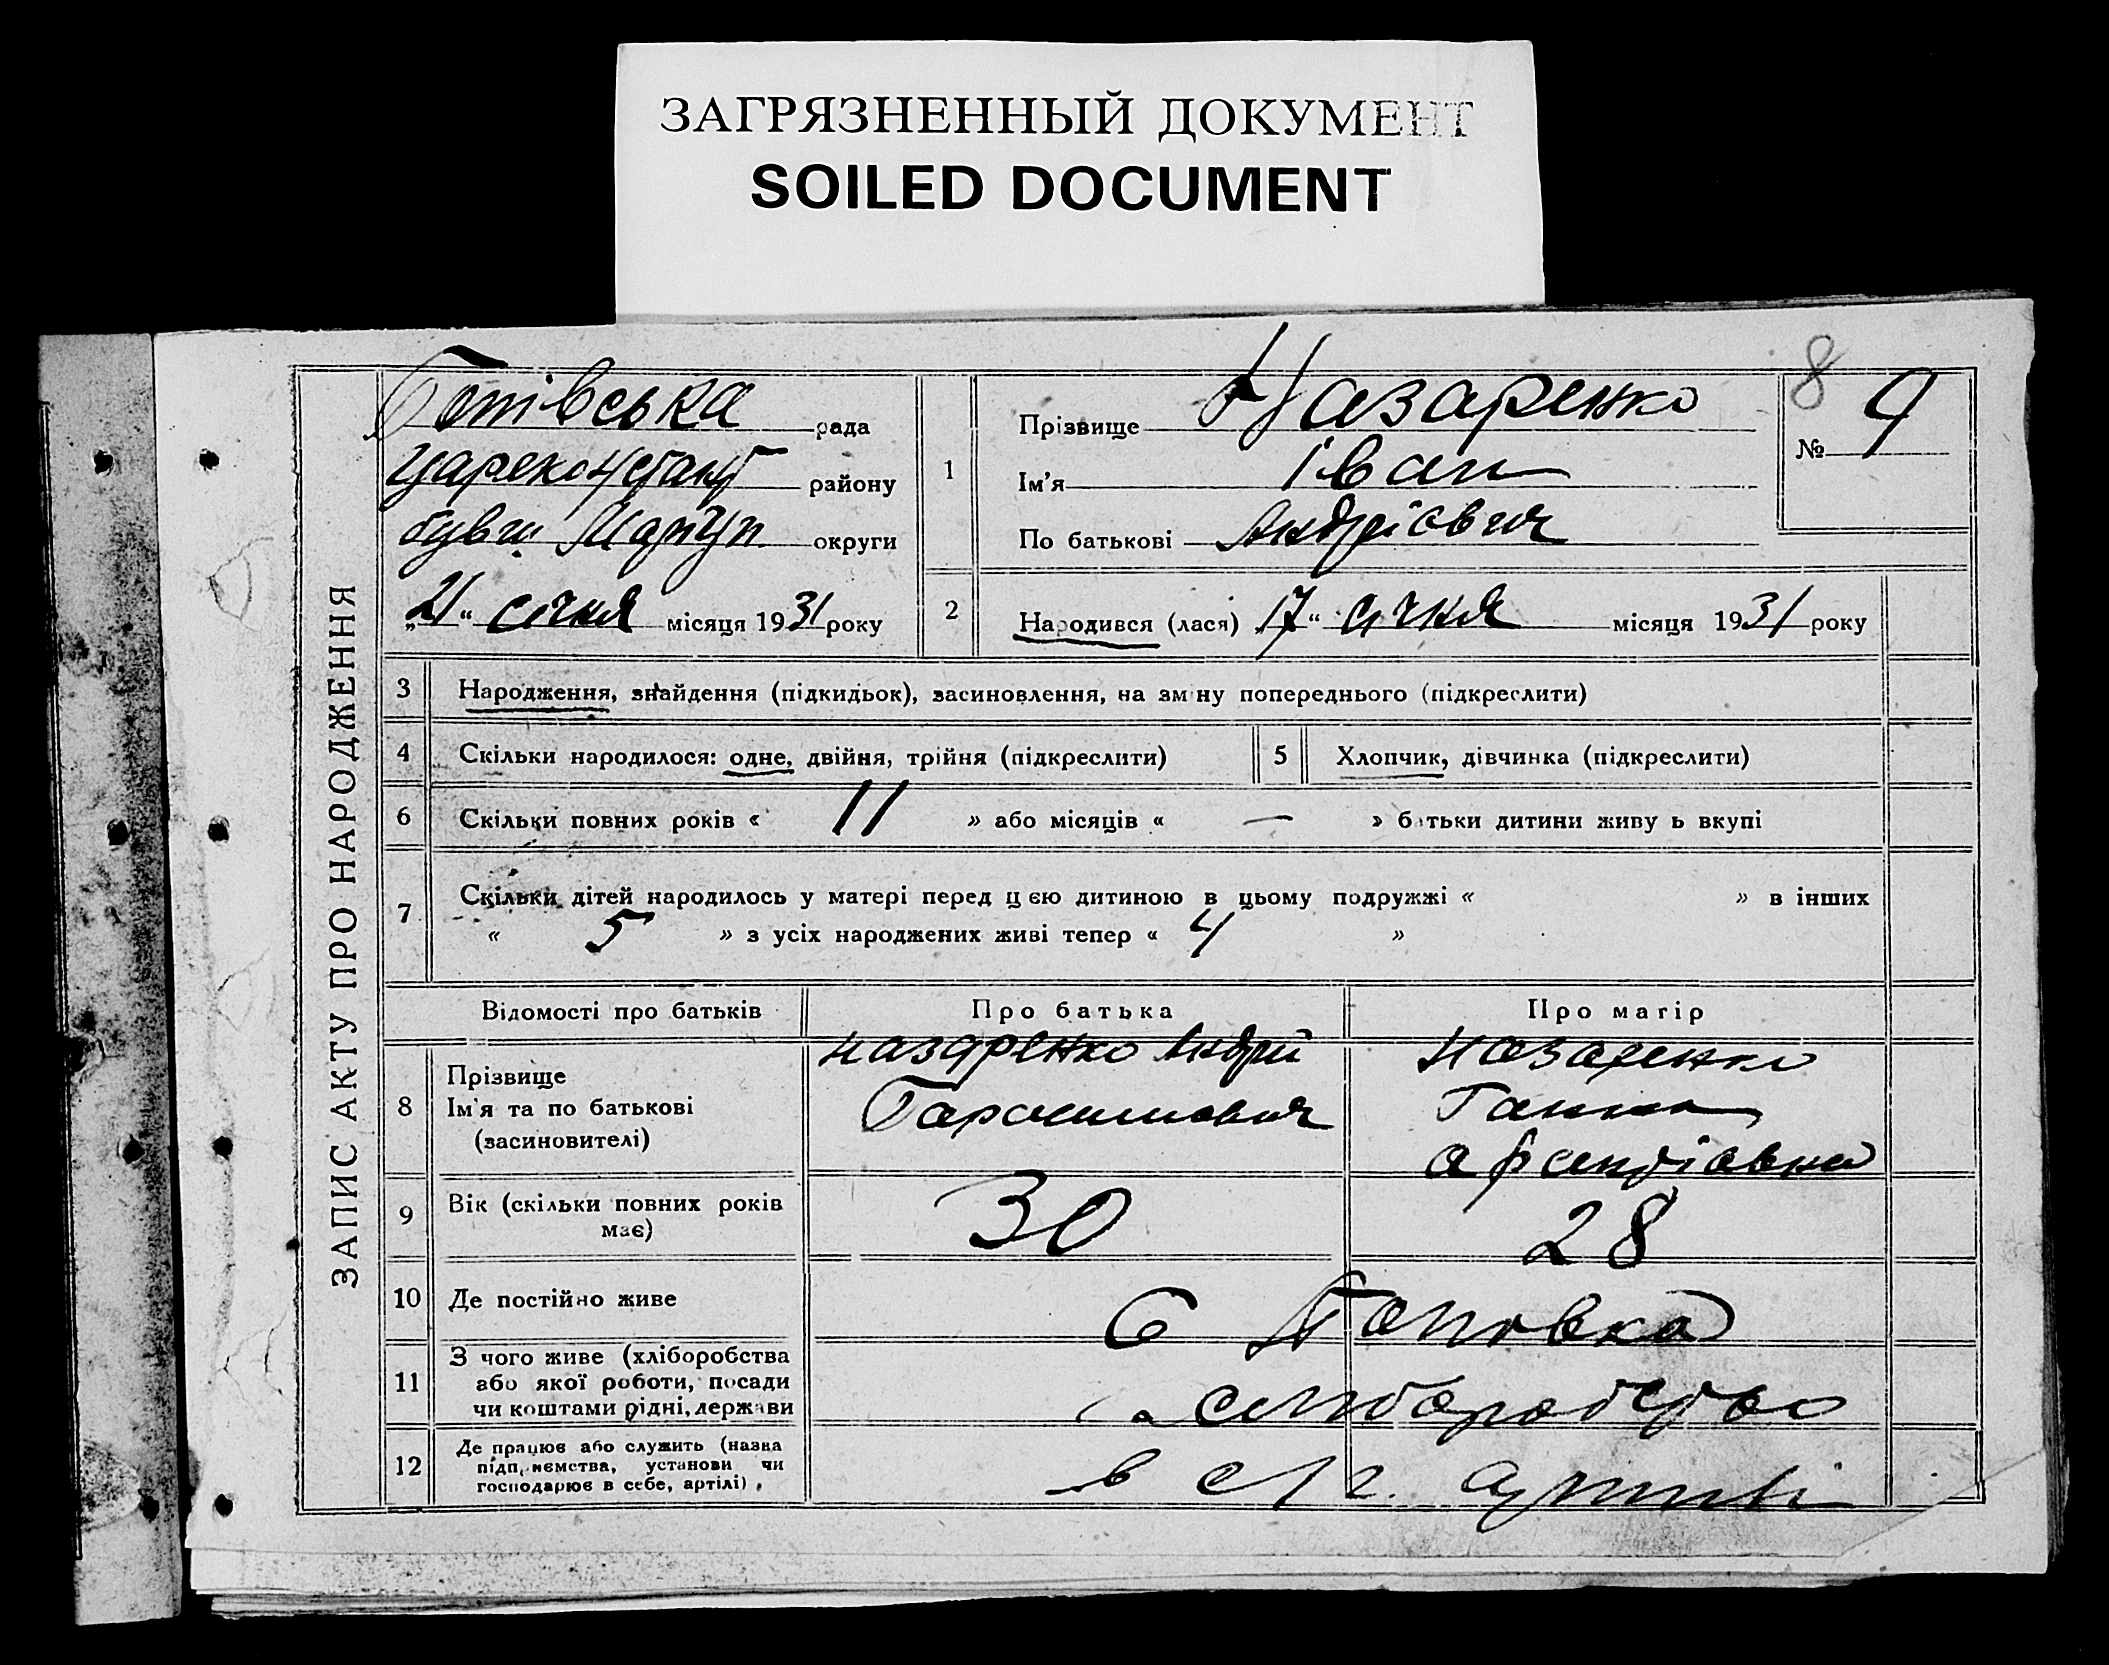 ЗАГРЯЗНЕННЫЙ ДОКУМЕНТ
SOILED DOCUMENT
8
ЗАПИС АКТУ ПРО НАРОДЖЕННЯ
рада
району
бувш. Маріуп округи
„21“ січня місяця 1931 року
1
Прізвище Назаренко
Ім'я Іван
По батькові Андрієвич
№ 9
2 Народився (лася) „17“ січня місяця 1931 року
3 Народження, знайдення (підкидьок), засиновлення, на зміну попереднього (підкреслити)
4 Скільки народилося: одне, двійня, трійня (підкреслити)
5 Хлопчик, дівчинка (підкреслити)
6 Скільки повних років « 11 » або місяців « — » батьки дитини живуть вкупі
7 Скільки дітей народилось у матері перед цією дитиною в цьому подружжі « » в інших
« 5 » з усіх народжених живі тепер « 4 »
Відомості про батьків
Про батька
Про матір
8
Прізвище
Ім'я та по батькові
(засиновителі)
Назаренко Андрій
Герасимович
Назаренко
Ганна
9
Вік (скільки повних років
має)
30
28
10 Де постійно живе
С
11
З чого живе (хліборобства
або якої роботи, посади
чи коштами рідні, держави
12
Де працює або служить (назва
підприємства, установи чи
господарює в себе, артілі)
в с/г. артілі